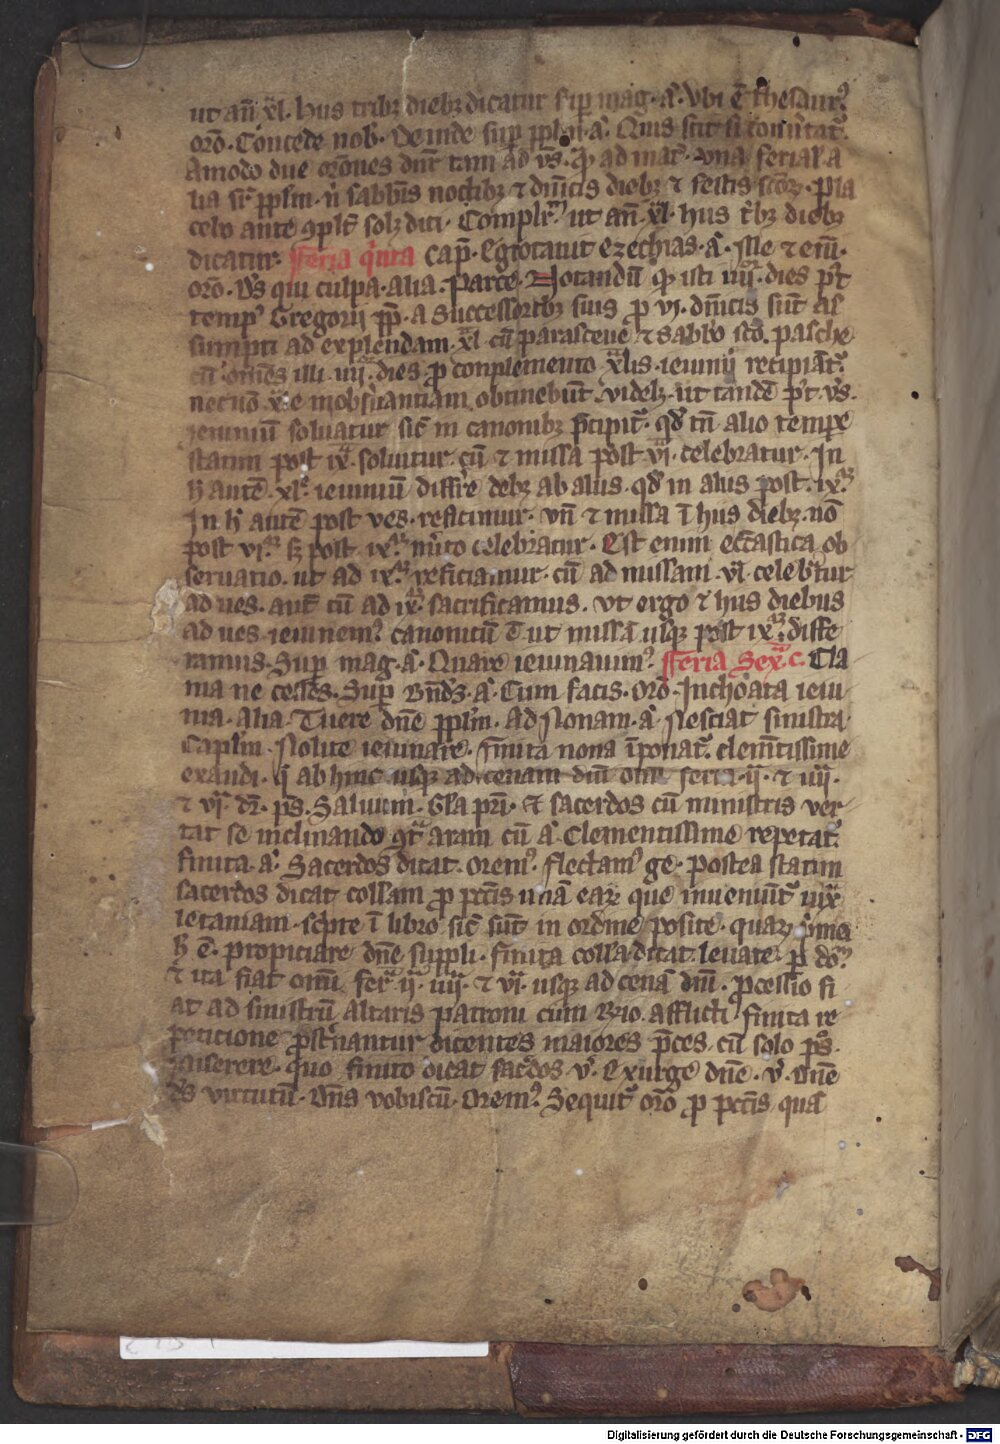 ut añ xl. Hus tribꝫ diebꝫ dicatur sup mag. a. Vbi ē thesaur⁹
orō. Concede nob. Deinde sup pplm a. Quis scit si conũtat᷑.
Amodo due orōnes dn̄t tam ad vs. ꝙ ad mat᷑. vna ferial᷑ a
lia sr pplm. n̄ sabbīs noctibꝫ ⁊ dn̄icis diebꝫ ⁊ festis scōꝝ. Pla
cebo ante ꝯplet solꝫ dici. Complr̄m ut añ. xl. hus tꝰbꝫ diebꝫ
dicatur. Feria quīta Cap̄. Egrotauit ezechias. a. Ille ⁊ em̄.
orō. Ds qui culpa. Alia. Parce. Notandū ꝙ isti iiij. dies p᷑t
temp⁹ Gregorij pp̄. a successoribꝫ suis p vj. dn̄icis sūt as
sumpti ad explendam. xl. cū parasceue ⁊ sabbo scō. pasche
cū om̄es illi iiij. dies p conplemento xlis. ieiunij recipiāt᷑.
necnō xl᷑e inobseruantiam obtinebūt. videlꝫ. ut tandē p᷑t vs.
ieiuniū soluatur sic̄ in canonibꝫ p̄cipit᷑. qd̄ tn̄ alio tempe
statim post ix. soluitur cū ⁊ missa post vj. celebratur. In
h̄ autē. xl. ieiuniū differe debꝫ ab aliis. qd̄ in aliis post. ix.
In h̄ autē post ves. reficimur. vn̄ ⁊ missa ī hus diebꝫ. nō
post vj. sꝫ post. ix. mito celebratur. Est enim ecc̄astica ob
seruatio. ut ad ix. reficiamur. cū ad missam. vl᷑ celebr̄tur
ad ues. aut̄ cū ad ix. sacrificamus. vt ergo ⁊ hus diebus
ad ues. ieiunem⁹. canonicū ē ut missa usqꝫ post ix. diffe
ramus. Sup mag. a. Quare ieiunauim⁹. Feria Sexta. c. Cla
ma ne cesses. Sup Bn̄dꝰs. a. Cum facis. Orō. Inchoata ieiu
nia. Alia. Tuere dn̄e pplm̄. Ad Nonam. a. Nesciat sinistra.
Caplm̄. Nolite ieiunare. finita nona īponat᷑. clemētissime
exaudi. ab hinc usqꝫ ad cenam dn̄i om̄i feria. ij. ⁊ iiij.
⁊ vj. dr. ps. Saluum. Gla pri. Et sacerdos cū ministris ver
tat se inclinando ꝯtra aram cū a. Clementissime repetat᷑.
finita. a. Sacerdos dicat. Orem⁹. flectam⁹ ge. postea statim
sacerdos dicat coll̄am p pctis unā eaꝝ que inueniūt᷑ iux
letaniam. sepꝰre ī libro sic̄ sūt in ordine posite. quaꝝ prima
h̄ ē. propiciare dn̄e suppli. finita colla dicat. leuate. p dom̄.
⁊ ita fiat omī. fer. ij. iiij. ⁊ vj. usqꝫ ad cenā dn̄i. pcessio fi
at ad sinistrū altaris patroni cum R̄io. afflicti finita re
petitione pst᷑nantur dicentes maiores p̄ces. cū solo ps.
Miserere. quo finito dicat sac̄dos v̄. Exurge dn̄e. v̄. Dn̄e
ds virtutū. Dn̄s vobiscū. Orem⁹. Sequit᷑ orō p pctis quā
Digitalisierung gefördert durch die Deutsche Forschungsgemeinschaft - DFG